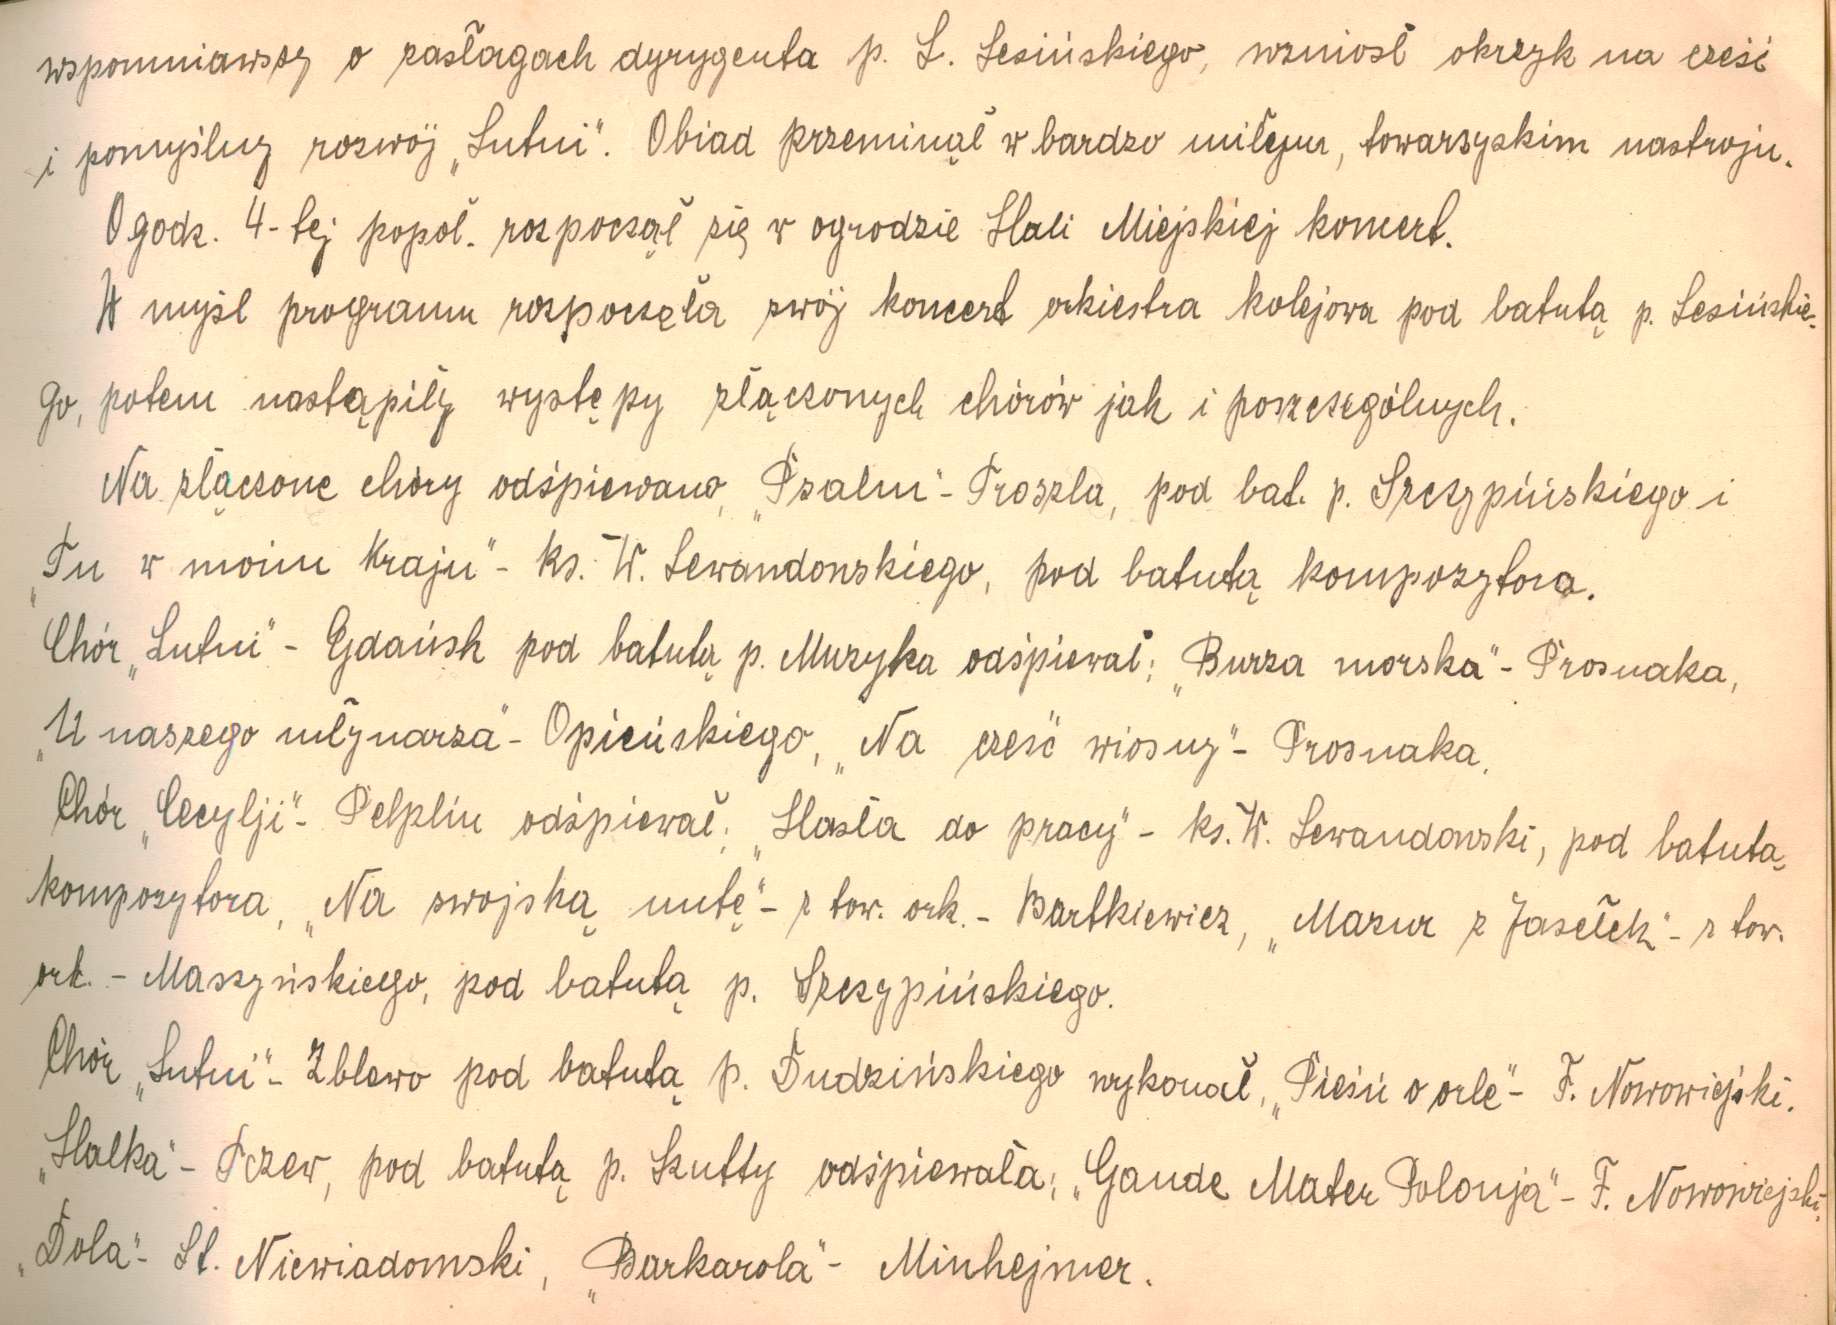 wspomniawszy o zasługach dyrygenta p. L. Lesińskiego, wzniósł okrzyk na cześć
i pomyślny rozwój „Lutni“. Obiad przeminął w bardzo miłym, towarzyskim nastroju.
O godz. 4-tej popoł. rozpoczął się w ogrodzie Hali Miejskiej koncert.
W myśl programu rozpoczęła swój koncert orkiestra kolejowa pod batutą p. Lesińskie-
go, potem nastąpiły występy złączonych chórów jak i poszczególnych.
Na złączone chóry odśpiewano, „Psalm“ - Troszla, pod bat. p. Szczypińskiego i
„Tu w moim Kraju“ - ks. W. Lewandowskiego, pod batutą kompozytora.
Chór „Lutni“ - Gdańsk pod batutą p. Muzyka odśpiewał: „Burza morska“ - Prosnaka,
„U naszego młynarza“ - Opieńskiego, „Na cześć wiosny“ - Prosnaka.
Chór „Cecylji“ - Pelplin odśpiewał: „Hasła do pracy“ - ks. W. Lewandowski, pod batutą
kompozytora, „Na swojską nutę“ - z tow. ork. - Bartkiewicz, „Mazur z Jasełek“ - z tow.
ork. - Maszyńskiego, pod batutą p. Szczypińskiego.
Chór „Lutni“ - Zblewo pod batutą p. Dudzińskiego wykonał, „Pieśń o orle“ - F. Nowowiejski.
„Halka“ - Tczew, pod batutą p. Szutty odśpiewała: „Gaude Mater Polonja“ - F. Nowowiejski,
„Dola“ - St. Niewiadomski, „Barkarola“ - Minhejmer.